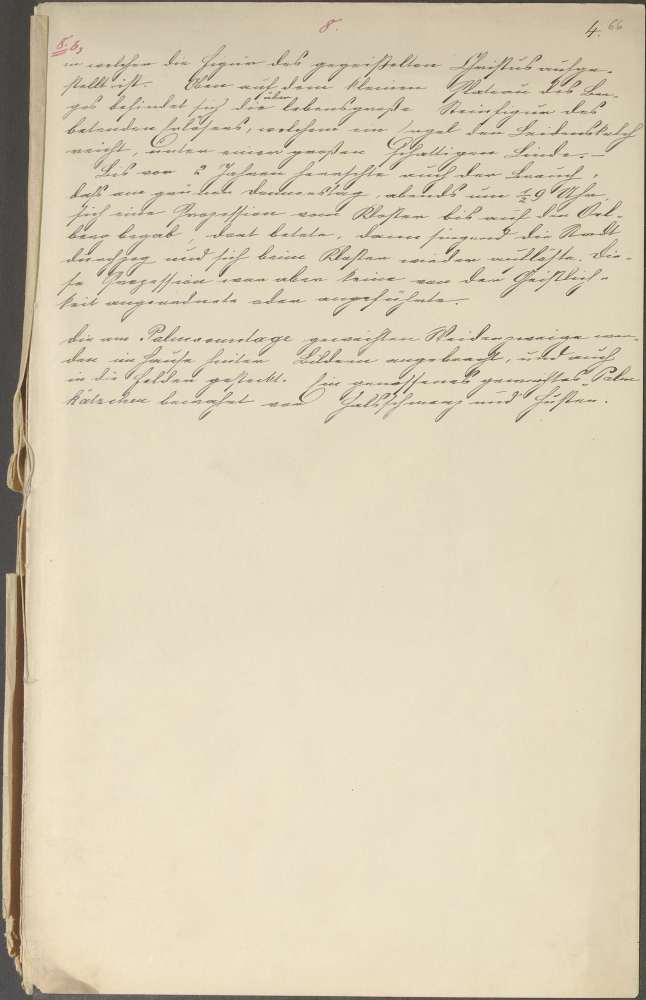 8.
4. 66
8. b,
in welcher die Figur des gegeißelten Christus aufge-
stellt ist. Oben auf dem kleinen Plateau des Ber-
ges befindet sich die über lebensgroße Steinfigur des
betenden Erlösers, welchem ein Engel den Leidenskelch
reicht, unter einer großen schattigen Linde. –
Bis vor 2 Jahren herrschte auch der Brauch,
daß am grünen Donnerstag, abends um ½ 9 Uhr,
sich eine Prozession vom Kloster bis auf den Oel-
berg begab, dort betete, dann singend die Stadt
durchzog und sich beim Kloster wieder auflöste. Die-
se Prozession war aber keine von der Geistlich-
keit angeordnete oder angeführte. –
Die am Palmsonntage geweihten Weidenzweige wer-
den im Hause hinter Bildern angebracht, und auch
in die Felder gesteckt. Ein genossenes geweihtes Palm
kätzchen bewahrt vor Halsschmerz und Husten.